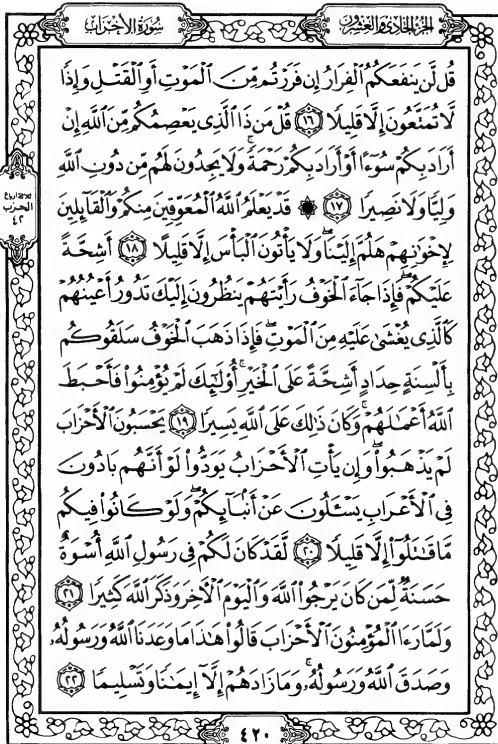 الجزء الحادي والعشرون
سورة الأحزاب
قُل لَّن يَنفَعَكُمُ ٱلْفِرَارُ إِن فَرَرْتُم مِّنَ ٱلْمَوْتِ أَوِ ٱلْقَتْلِ وَإِذًا
لَّا تُمَتَّعُونَ إِلَّا قَلِيلًا ١٦ قُلْ مَن ذَا ٱلَّذِى يَعْصِمُكُم مِّنَ ٱللَّهِ إِنْ
أَرَادَ بِكُمْ سُوٓءًا أَوْ أَرَادَ بِكُمْ رَحْمَةً ۚ وَلَا يَجِدُونَ لَهُم مِّن دُونِ ٱللَّهِ
وَلِيًّا وَلَا نَصِيرًا ١٧ ۞ قَدْ يَعْلَمُ ٱللَّهُ ٱلْمُعَوِّقِينَ مِنكُمْ وَٱلْقَآئِلِينَ
ثلاثة أرباع
الحزب
٤٢
لِإِخْوَٰنِهِمْ هَلُمَّ إِلَيْنَا ۖ وَلَا يَأْتُونَ ٱلْبَأْسَ إِلَّا قَلِيلًا ١٨ أَشِحَّةً
عَلَيْكُمْ ۖ فَإِذَا جَآءَ ٱلْخَوْفُ رَأَيْتَهُمْ يَنظُرُونَ إِلَيْكَ تَدُورُ أَعْيُنُهُمْ
كَٱلَّذِى يُغْشَىٰ عَلَيْهِ مِنَ ٱلْمَوْتِ ۖ فَإِذَا ذَهَبَ ٱلْخَوْفُ سَلَقُوكُم
بِأَلْسِنَةٍ حِدَادٍ أَشِحَّةً عَلَى ٱلْخَيْرِ ۚ أُو۟لَٰٓئِكَ لَمْ يُؤْمِنُوا۟ فَأَحْبَطَ
ٱللَّهُ أَعْمَٰلَهُمْ ۚ وَكَانَ ذَٰلِكَ عَلَى ٱللَّهِ يَسِيرًا ١٩ يَحْسَبُونَ ٱلْأَحْزَابَ
لَمْ يَذْهَبُوا۟ ۖ وَإِن يَأْتِ ٱلْأَحْزَابُ يَوَدُّوا۟ لَوْ أَنَّهُم بَادُونَ
فِى ٱلْأَعْرَابِ يَسْـَٔلُونَ عَنْ أَنۢبَآئِكُمْ ۖ وَلَوْ كَانُوا۟ فِيكُم
مَّا قَٰتَلُوٓا۟ إِلَّا قَلِيلًا ٢٠ لَّقَدْ كَانَ لَكُمْ فِى رَسُولِ ٱللَّهِ أُسْوَةٌ
حَسَنَةٌ لِّمَن كَانَ يَرْجُوا۟ ٱللَّهَ وَٱلْيَوْمَ ٱلْءَاخِرَ وَذَكَرَ ٱللَّهَ كَثِيرًا ٢١
وَلَمَّا رَءَا ٱلْمُؤْمِنُونَ ٱلْأَحْزَابَ قَالُوا۟ هَٰذَا مَا وَعَدَنَا ٱللَّهُ وَرَسُولُهُۥ
وَصَدَقَ ٱللَّهُ وَرَسُولُهُۥ ۚ وَمَا زَادَهُمْ إِلَّآ إِيمَٰنًا وَتَسْلِيمًا ٢٢
٤٢٠